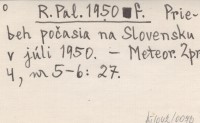 R. Pal. 1950 f. Prie-
beh počasia na Slovensku
v júli 1950. — Meteor. Zpr.
4, nr 5-6: 27.